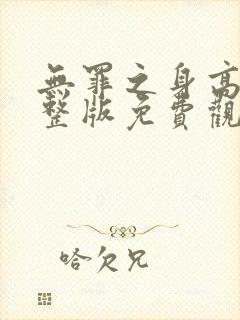 無罪之身高
整版免費觀
哈欠兄